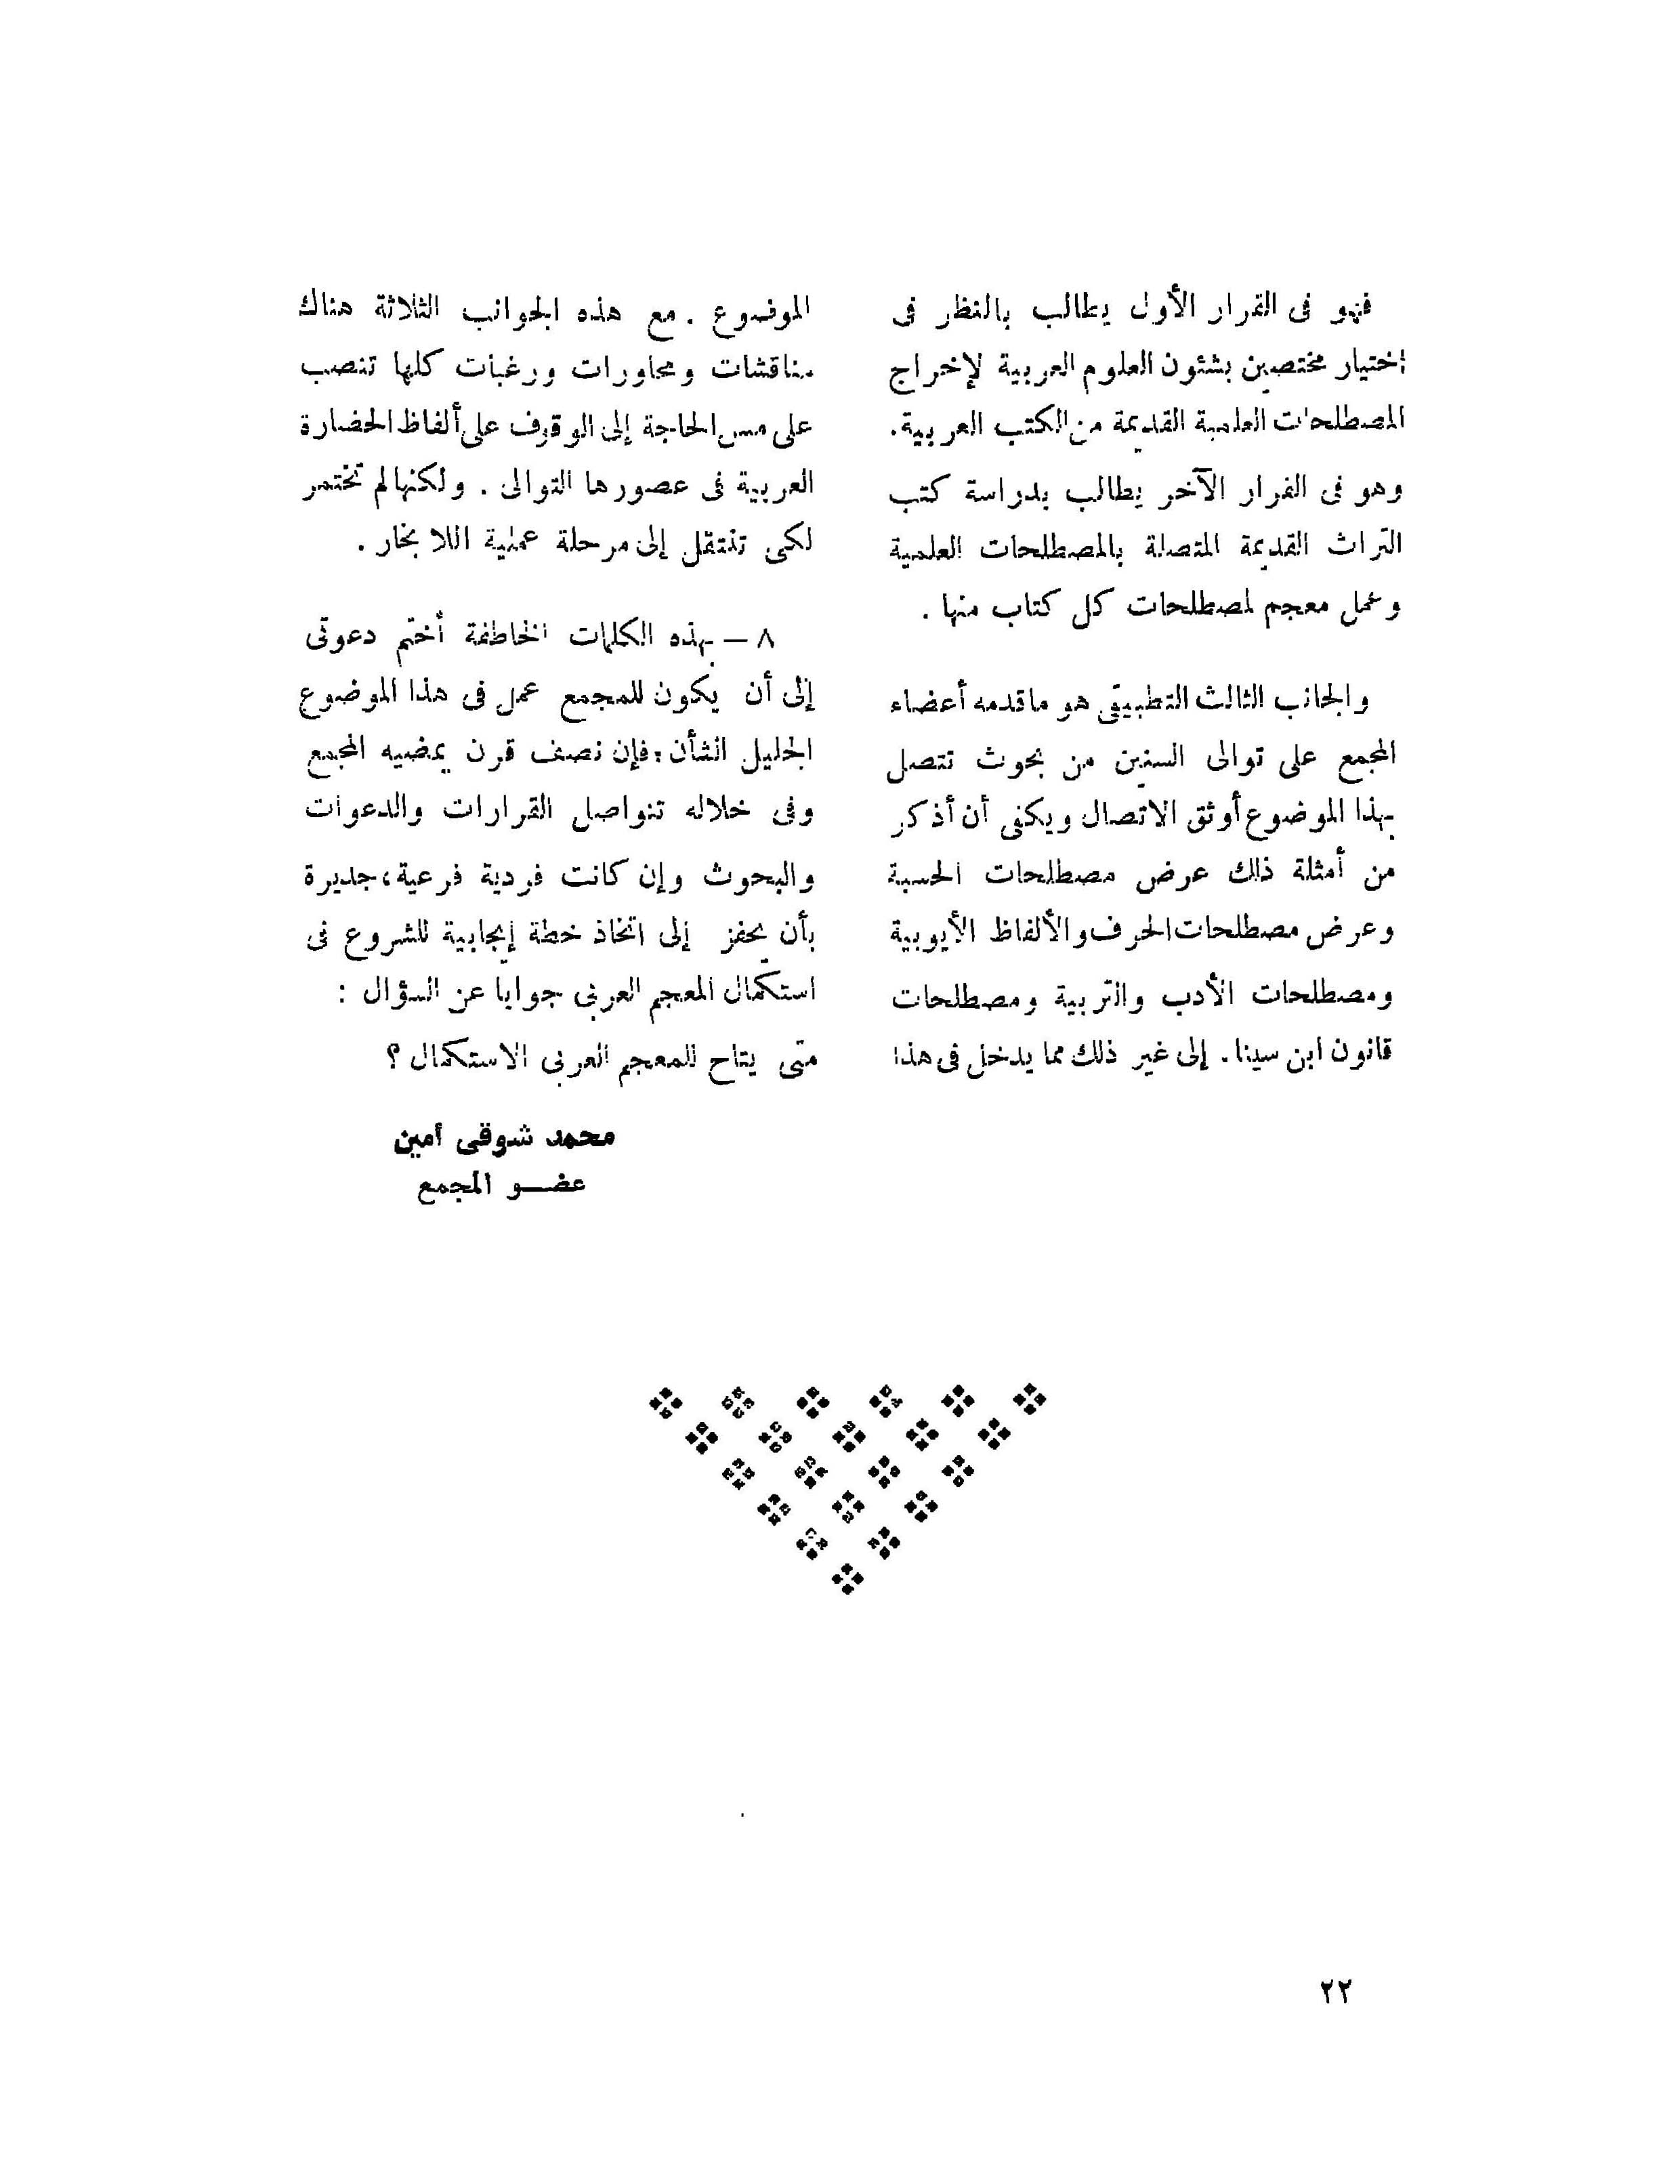 فهو فى القرار الأول يطالب بالنظر فى
اختيار مختصين بشئون العلوم العربية لإخراج
المصطلحات العلمية القديمة من الكتب العربية.
وهو فى القرار الآخر يطالب بدراسة كتب
التراث القديمة المتصلة بالمصطلحات العلمية
وعمل معجم لمصطلحات كل كتاب منها .
والجانب الثالث التطبيقى هو ماقدمه أعضاء
المجمع على توالى السنين من بحوث تتصل
بهذا الموضوع أوثق الاتصال ويكفى أن أذكر
من أمثلة ذلك عرض مصطلحات الحسبة
وعرض مصطلحات الحرف والألفاظ الأيوبية
ومصطلحات الأدب والتربية ومصطلحات
قانون ابن سينا . إلى غير ذلك مما يدخل فى هذا
الموضوع . مع هذه الجوانب الثلاثة هناك
مناقشات ومحاورات ورغبات كلها تنصب
على مس الحاجة إلى الوقوف على ألفاظ الحضارة
العربية فى عصورها التوالى . ولكنها لم تختمر
لكى تنتقل إلى مرحلة عملية اللا بخار .
٨ – بهذه الكلمات الخاطفة أختم دعوتى
إلى أن يكون للمجمع عمل فى هذا الموضوع
الجليل الشأن ؛ فإن نصف قرن يمضيه المجمع
وفى خلاله تتواصل القرارات والدعوات
والبحوث وإن كانت فردية فرعية ، جديرة
بأن يحفز إلى اتخاذ خطة إيجابية للشروع فى
استكمال المعجم العربى جوابا عن السؤال :
متى يتاح للمعجم العربى الاستكمال ؟
محمد شوقى أمين
عضو المجمع
٢٢